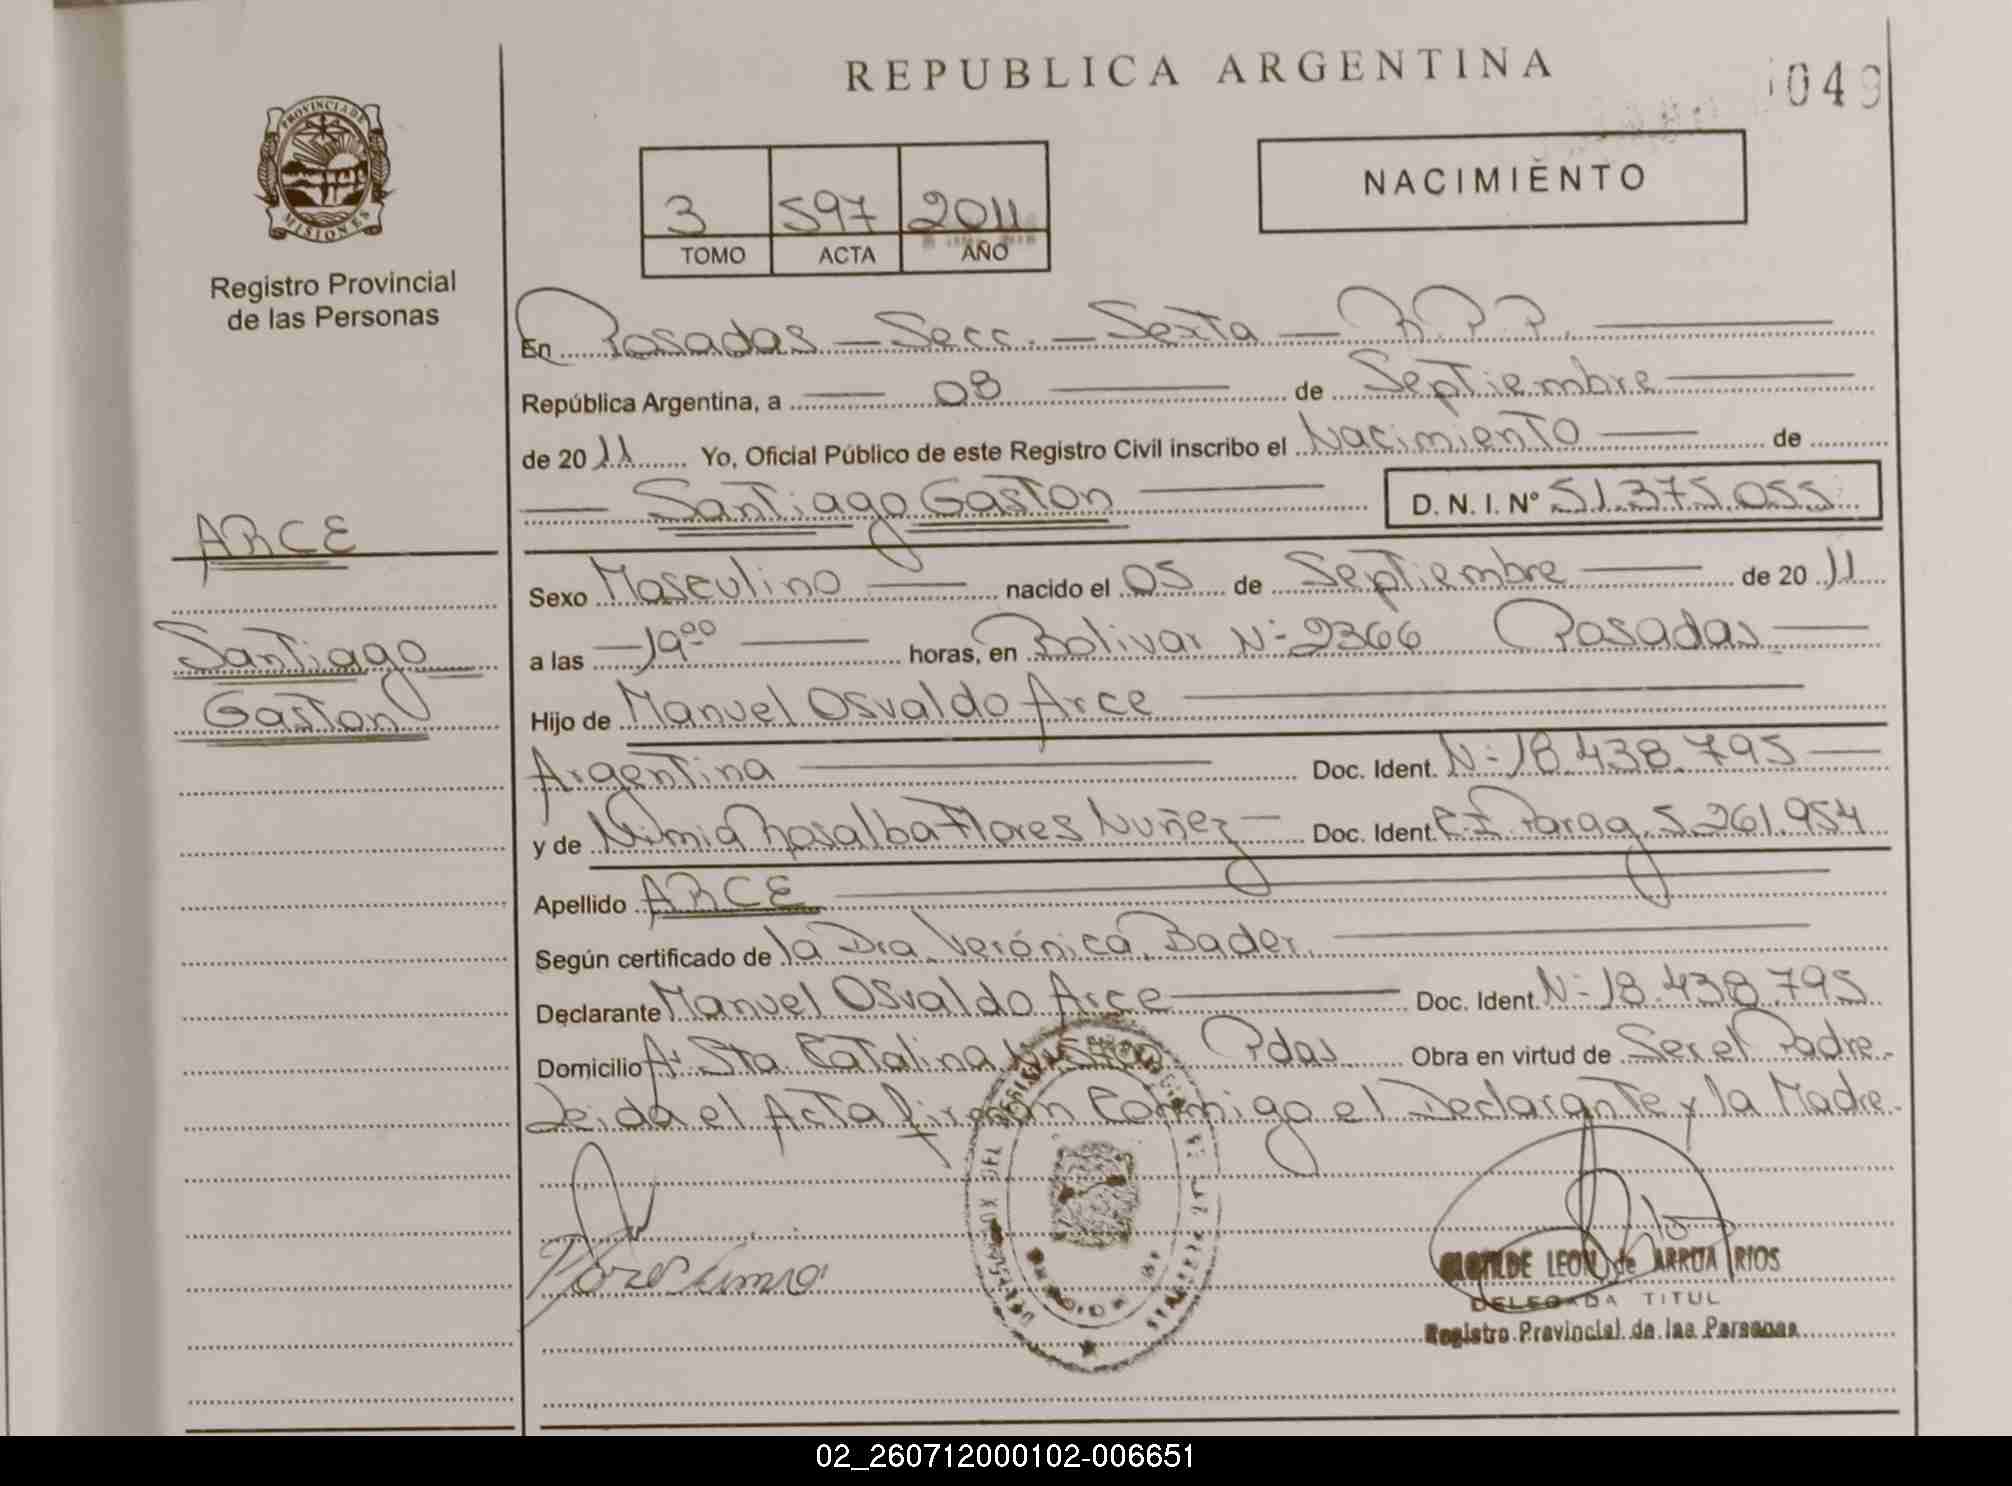 REPUBLICA ARGENTINA
049
PROVINCIA DE
MISIONES
Registro Provincial
de las Personas
3 597 2011
TOMO ACTA AÑO
NACIMIENTO
En Posadas - Secc. - Sexta - R.P.P.
República Argentina, a 08 de Septiembre
de 2011 Yo, Oficial Público de este Registro Civil inscribo el Nacimiento de
Santiago Gaston D. N. I. Nº 51.375.055
ARCE
Santiago
Gaston
Sexo Masculino nacido el 05 de Septiembre de 2011
a las 19⁰⁰ horas, en Bolivar Nº 2366 Posadas
Hijo de Manuel Osvaldo Arce
Argentina Doc. Ident. Nº 18.438.795
y de Nimia Rosalba Flores Nuñez Doc. Ident. C.I. Parag. 5.261.954
Apellido ARCE
Según certificado de la Dra. Verónica Bader
Declarante Manuel Osvaldo Arce Doc. Ident. Nº 18.438.795
Domicilio Aº Sta. Catalina Pdas Obra en virtud de Ser el Padre.
Leida el Acta firman Conmigo el Declarante y la Madre.
LEON de ARROTA RIOS
DELEGADA TITUL
Registro Provincial de las Personas
02_260712000102-006651